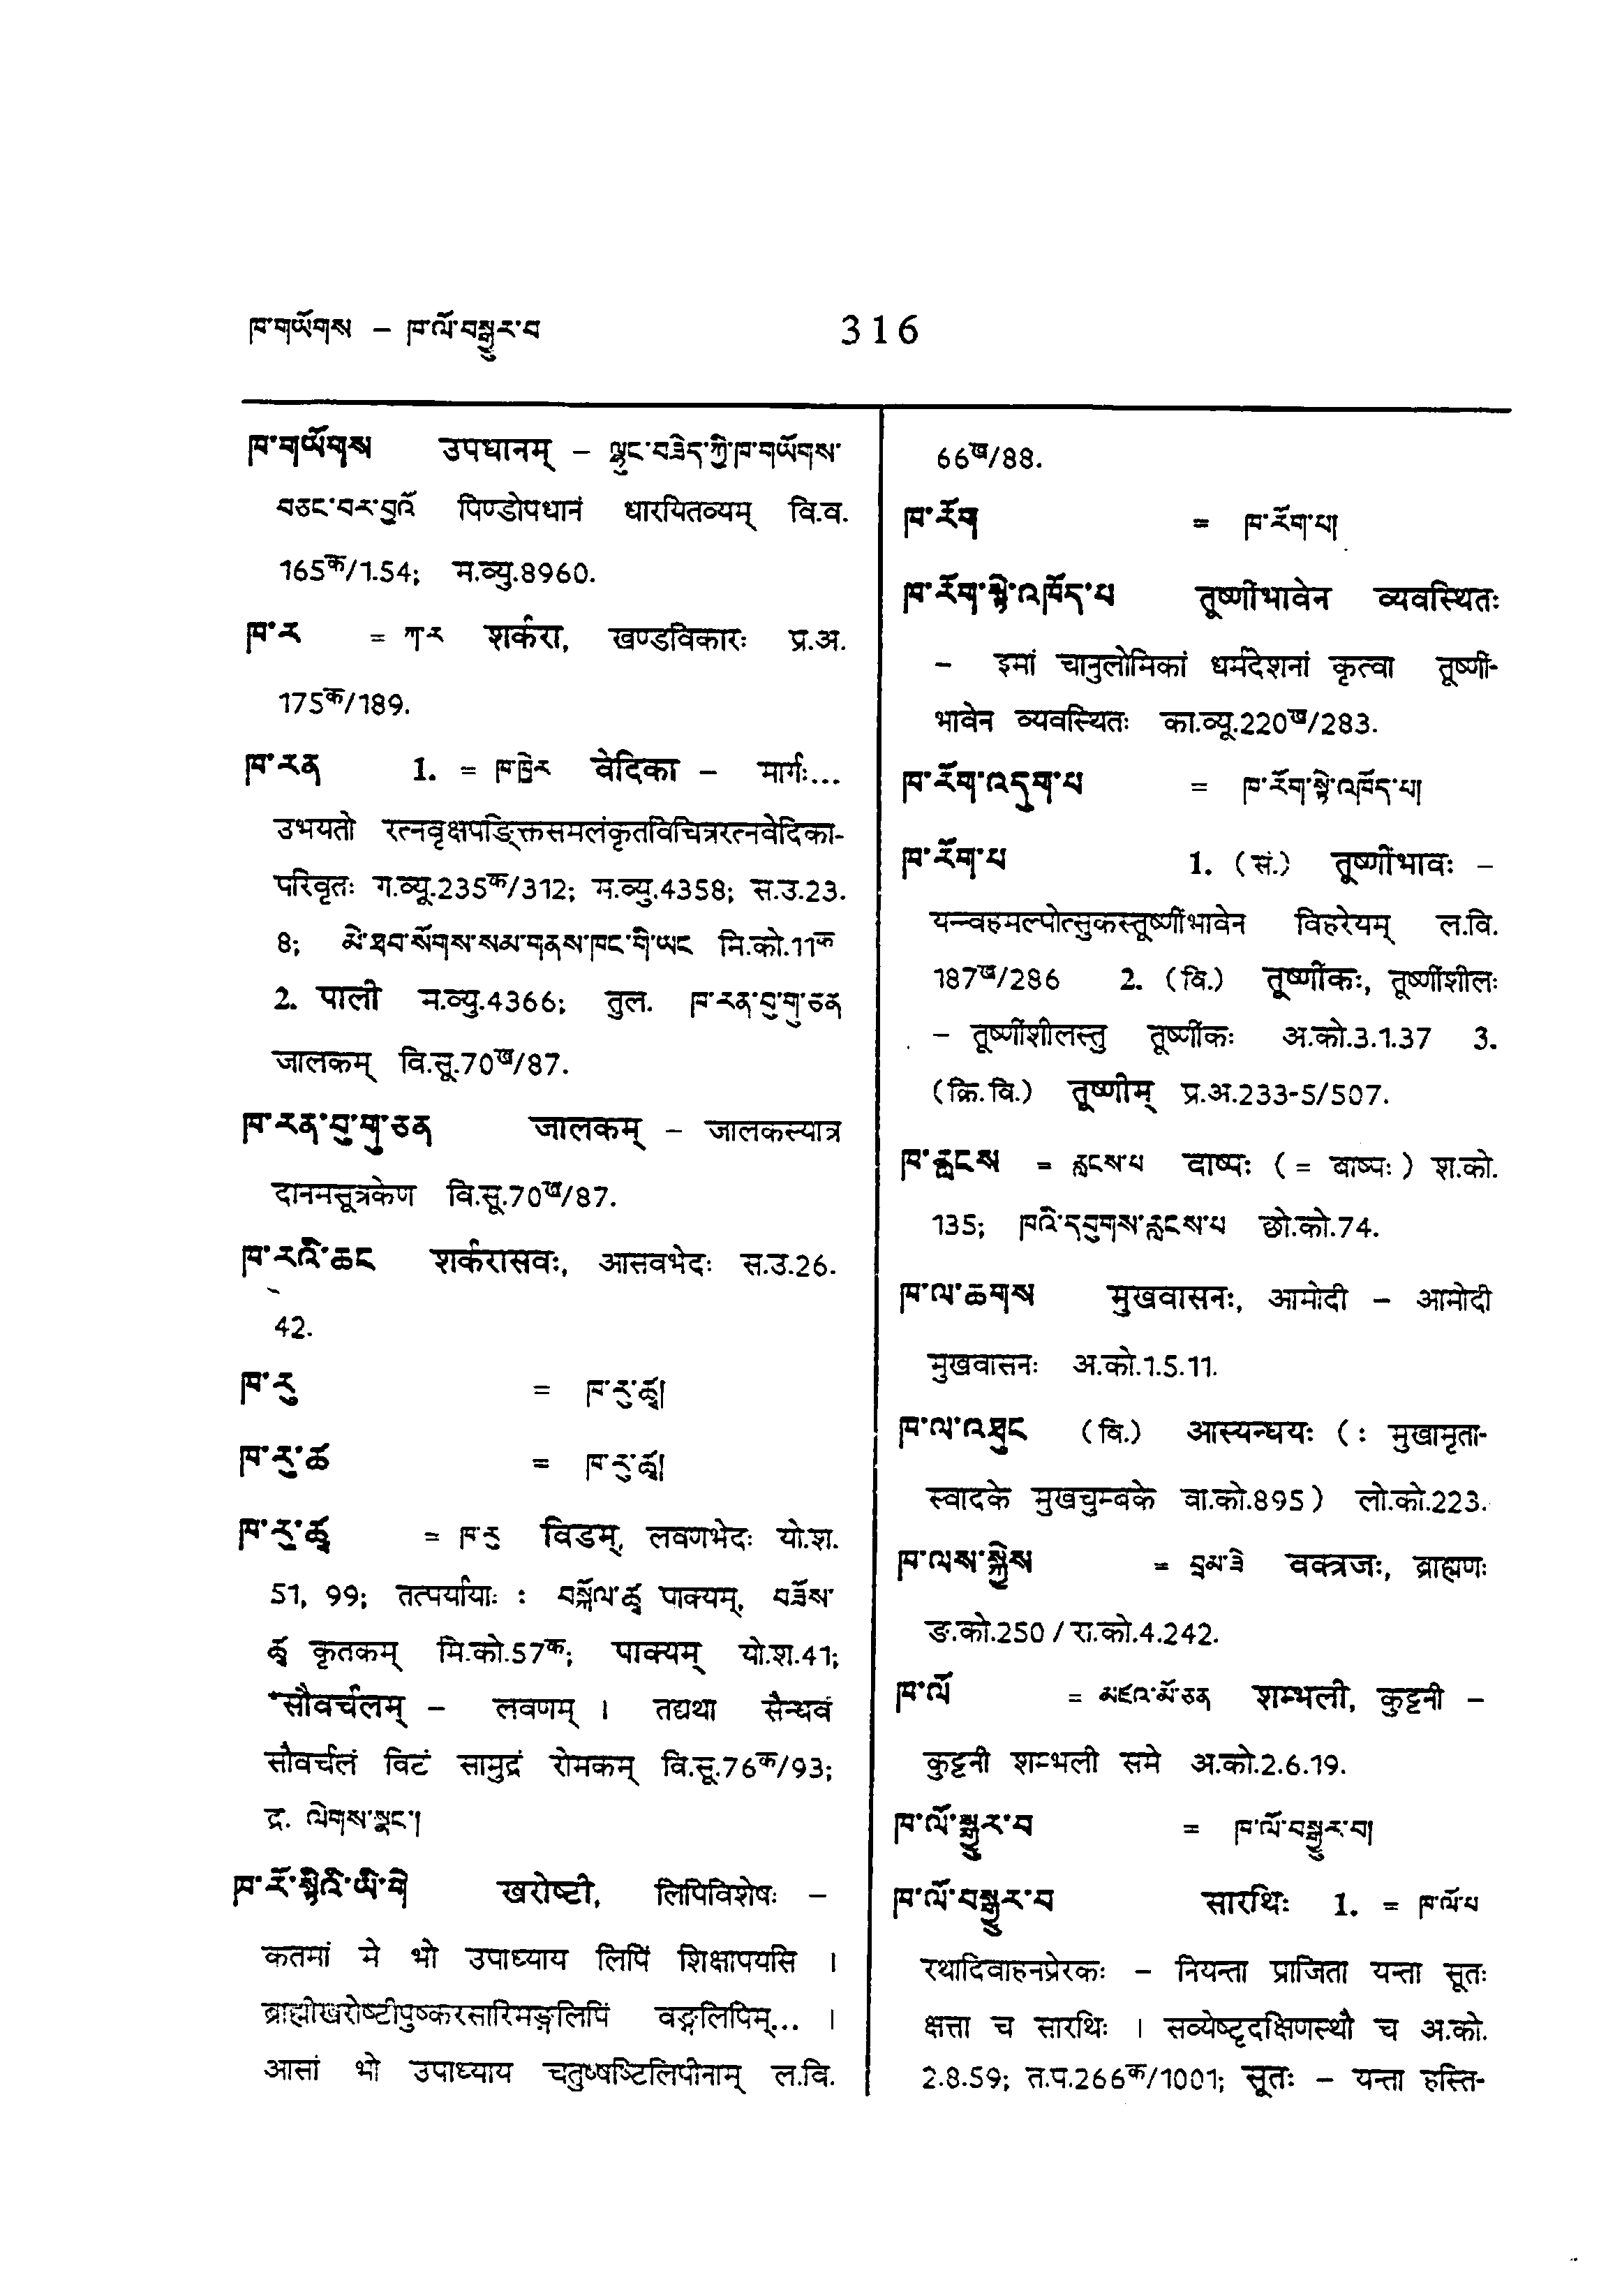 ཁ་གཡོགས – ཁ་ལོ་བསྒྱུར་བ
316
ཁ་གཡོགས उपधानम् – ལྷུང་བཟེད་ཀྱི་ཁ་གཡོགས་
བཅང་བར་བྱའོ पिण्डोपधानं धारयितव्यम् वि.व.
165क/1.54; म.व्यु.8960.
ཁ་ར = ཀ་ར शर्करा, खण्डविकारः प्र.अ.
175क/189.
ཁ་རན 1. = ཁ་ཁྱེར वेदिका – मार्गः...
उभयतो रत्नवृक्षपङ्क्तिसमलंकृतविचित्ररत्नवेदिका-
परिवृतः ग.व्यू.235क/312; म.व्यु.4358; स.उ.23.
8; མེ་ཐབ་སོགས་སམ་གནས་ཁང་གི་ཡང मि.को.11क
2. पाली म.व्यु.4366; तुल. ཁ་རན་བུ་གུ་ཅན
जालकम् वि.सू.70ख/87.
ཁ་རན་བུ་གུ་ཅན जालकम् – जालकस्यात्र
दानमसूत्रकेण वि.सू.70ख/87.
ཁ་རའི་ཆང शर्करासवः, आसवभेदः स.उ.26.
42.
ཁ་རུ = ཁ་རུ་ཚྭ།
ཁ་རུ་ཚ = ཁ་རུ་ཚྭ།
ཁ་རུ་ཚྭ = ཁ་རུ विडम्, लवणभेदः यो.श.
51, 99; तत्पर्यायाः : བསྐོལ་ཚྭ पाक्यम्, བཟོས་
ཚྭ कृतकम् मि.को.57क; पाक्यम् यो.श.41;
*सौवर्चलम् – लवणम् । तद्यथा सैन्धवं
सौवर्चलं विटं सामुद्रं रोमकम् वि.सू.76क/93;
द्र. ལེགས་སྣང་།
ཁ་རོ་སྟིའི་ཡི་གེ खरोष्टी, लिपिविशेषः –
कतमां मे भो उपाध्याय लिपिं शिक्षापयसि ।
ब्राह्मीखरोष्टीपुष्करसारिमङ्गलिपिं वङ्गलिपिम्... ।
आसां भो उपाध्याय चतुष्षष्टिलिपीनाम् ल.वि.
66ख/88.
ཁ་རོག = ཁ་རོག་པ།
ཁ་རོག་སྟེ་འཁོད་པ तूष्णींभावेन व्यवस्थितः
– इमां चानुलोमिकां धर्मदेशनां कृत्वा तूष्णीं-
भावेन व्यवस्थितः का.व्यू.220ख/283.
ཁ་རོག་འདུག་པ = ཁ་རོག་སྟེ་འཁོད་པ།
ཁ་རོག་པ 1. (सं.) तूष्णींभावः –
यन्न्वहमल्पोत्सुकस्तूष्णींभावेन विहरेयम् ल.वि.
187ख/286 2. (वि.) तूष्णींकः, तूष्णींशीलः
– तूष्णींशीलस्तु तूष्णींकः अ.को.3.1.37 3.
(क्रि.वि.) तूष्णीम् प्र.अ.233-5/507.
ཁ་རླངས = རླངས་པ वाष्पः ( = बाष्पः ) श.को.
135; ཁའི་དབུགས་རླངས་པ छो.को.74.
ཁ་ལ་ཆགས मुखवासनः, आमोदी – आमोदी
मुखवासनः अ.को.1.5.11.
ཁ་ལ་འཐུང (वि.) आस्यन्धयः ( : मुखामृता-
स्वादके मुखचुम्बके वा.को.895 ) लो.को.223.
ཁ་ལས་སྐྱེས = བྲམ་ཟེ वक्त्रजः, ब्राह्मणः
ङ.को.250 / रा.को.4.242.
ཁ་ལོ = མཛའ་མོ་ཅན शम्भली, कुट्टनी –
कुट्टनी शम्भली समे अ.को.2.6.19.
ཁ་ལོ་སྒྱུར་བ = ཁ་ལོ་བསྒྱུར་བ།
ཁ་ལོ་བསྒྱུར་བ सारथिः 1. = ཁ་ལོ་པ
रथादिवाहनप्रेरकः – नियन्ता प्राजिता यन्ता सूतः
क्षत्ता च सारथिः । सव्येष्टृदक्षिणस्थौ च अ.को.
2.8.59; त.प.266क/1001; सूतः – यन्ता हस्ति-